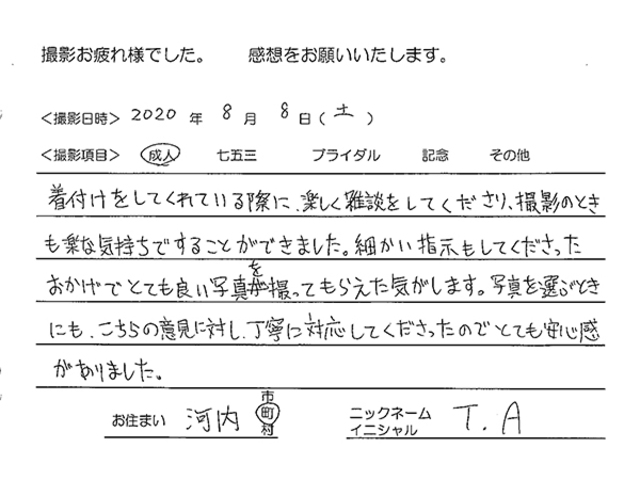 撮影お疲れ様でした。 感想をお願いいたします。
＜撮影日時＞ 2020 年 8 月 8 日（土）
＜撮影項目＞ 成人 七五三 ブライダル 記念 その他
着付けをしてくれている際に、楽しく雑談をしてくださり、撮影のとき
も楽な気持ちですることができました。細かい指示もしてくださった
おかげでとても良い写真を撮ってもらえた気がします。写真を選ぶとき
にも、こちらの意見に対し、丁寧に対応してくださったのでとても安心感
がありました。
お住まい 河内 市町村 ニックネーム イニシャル T.A